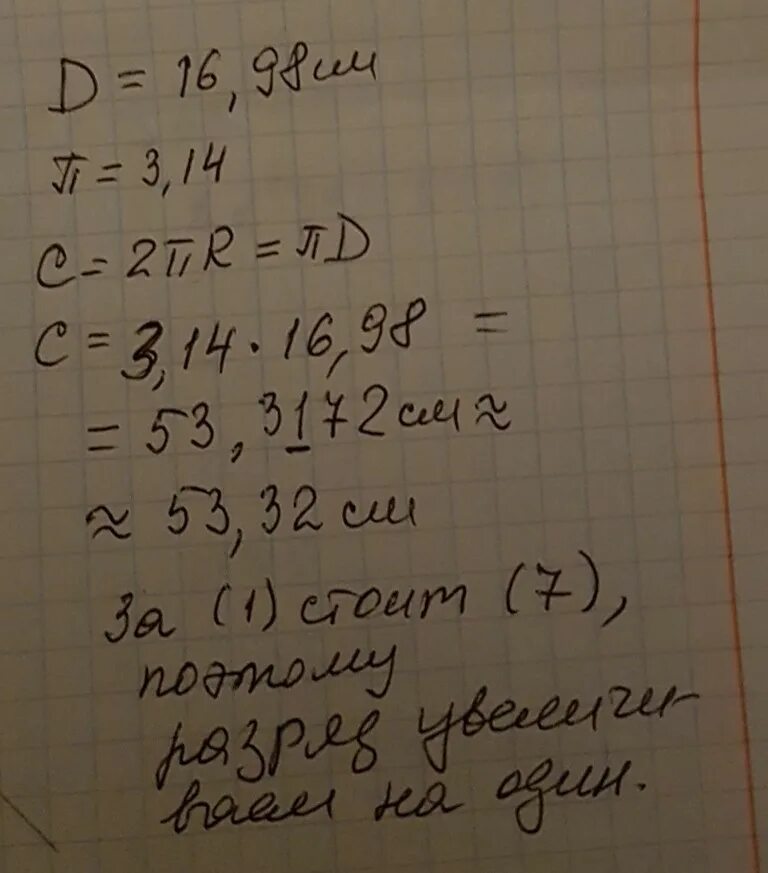 D = 16,98 см
π = 3,14
C = 2πR = πD
C = 3,14 · 16,98 =
= 53,3172 см ≈
≈ 53,32 см
За (1) стоит (7),
поэтому
разряд увеличи-
ваем на один.